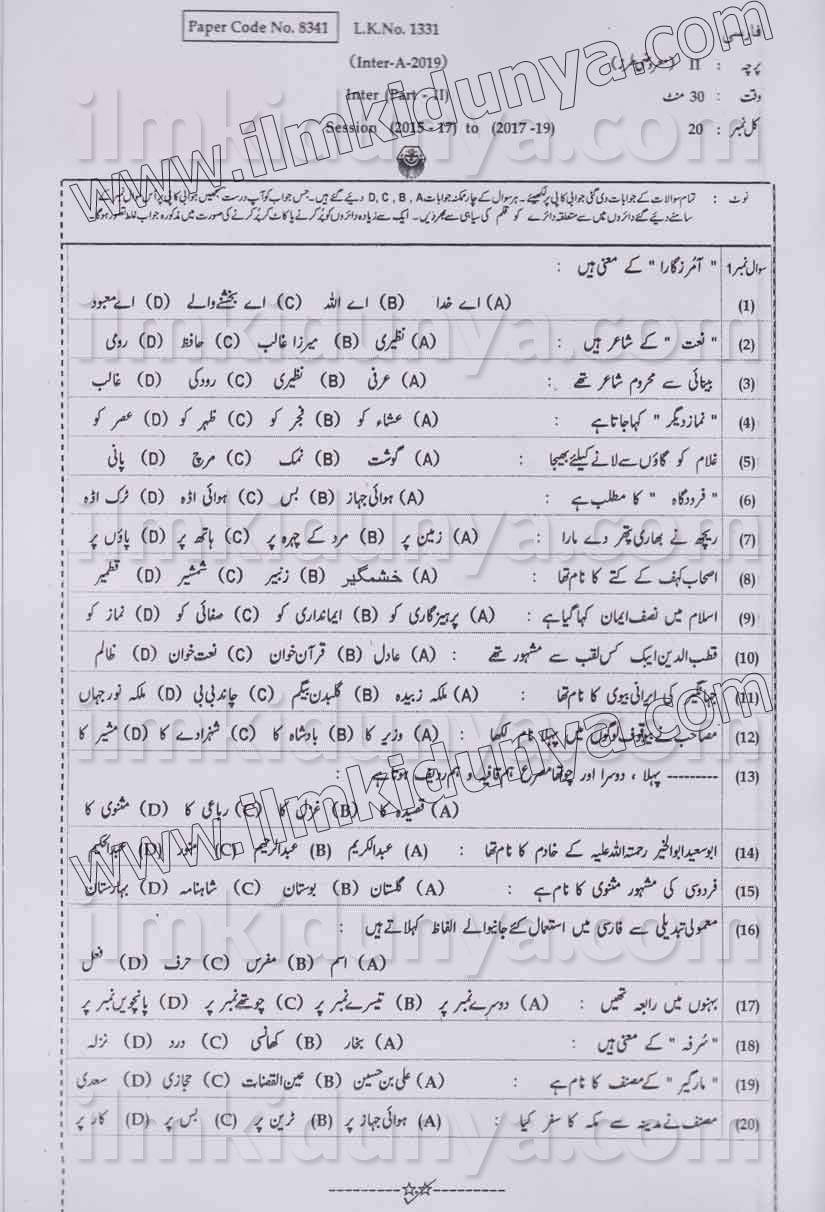 Paper Code No. 8341 L.K.No. 1331 فارسی
(Inter-A-2019) پرچہ : II (معروضی طرز)
Inter (Part - II) وقت : 30 منٹ
Session (2015 - 17) to (2017 -19) کل نمبر : 20
نوٹ : تمام سوالات کے جوابات دی گئی جوابی کاپی پر لکھیئے ۔ ہر سوال کے چار ممکنہ جوابات A , B , C , D دیئے گئے ہیں ۔ جس جواب کو آپ درست سمجھیں جوابی کاپی پر اُس سوال نمبر کے
سامنے دیئے گئے دائروں میں سے متعلقہ دائرے کو قلم کی سیاہی سے بھر دیں ۔ ایک سے زیادہ دائروں کو پُر کرنے یا کاٹ کر پُر کرنے کی صورت میں مذکورہ جواب غلط تصور ہو گا ۔
سوال نمبر 1 " آمرزگارا " کے معنی ہیں :
(1) (A) اے خدا (B) اے اللہ (C) اے بخشنے والے (D) اے معبود
(2) " نعت " کے شاعر ہیں : (A) نظیری (B) میرزا غالب (C) حافظ (D) رومی
(3) بینائی سے محروم شاعر تھے : (A) عرفی (B) نظیری (C) رودکی (D) غالب
(4) " نماز دیگر " کہا جاتا ہے : (A) عشاء کو (B) فجر کو (C) ظہر کو (D) عصر کو
(5) غلام کو گاؤں سے لانے کیلئے بھیجا : (A) گوشت (B) نمک (C) مرچ (D) پانی
(6) " فرودگاہ " کا مطلب ہے : (A) ہوائی جہاز (B) بس (C) ہوائی اڈہ (D) ٹرک اڈہ
(7) ریچھ نے بھاری پتھر دے مارا : (A) زمین پر (B) مرد کے چہرہ پر (C) ہاتھ پر (D) پاؤں پر
(8) اصحاب کہف کے کتے کا نام تھا : (A) خشمگیر (B) زنبیر (C) شمشیر (D) قطمیر
(9) اسلام میں نصف ایمان کہا گیا ہے : (A) پرہیزگاری کو (B) ایمانداری کو (C) صفائی کو (D) نماز کو
(10) قطب الدین ایبک کس لقب سے مشہور تھے : (A) عادل (B) قرآن خوان (C) نعت خوان (D) ظالم
(11) جہانگیر کی ایرانی بیوی کا نام تھا : (A) ملکہ زبیدہ (B) گلبدن بیگم (C) چاند بی بی (D) ملکہ نور جہاں
(12) مصاحب نے بیوقوف لوگوں میں پہلا نام لکھا : (A) وزیر کا (B) بادشاہ کا (C) شہزادے کا (D) مشیر کا
(13) --------- پہلا ، دوسرا اور چوتھا مصرع ہم قافیہ و ہم ردیف ہوتا ہے :
(A) قصیدہ کا (B) غزل کا (C) رباعی کا (D) مثنوی کا
(14) ابو سعید ابوالخیر رحمتہ اللہ علیہ کے خادم کا نام تھا : (A) عبدالکریم (B) عبدالرحیم (C) منور (D) عبدالحکیم
(15) فردوسی کی مشہور مثنوی کا نام ہے : (A) گلستان (B) بوستان (C) شاہنامہ (D) بہارستان
(16) معمولی تبدیلی سے فارسی میں استعمال کئے جانیوالے الفاظ کہلاتے ہیں :
(A) اسم (B) مفرس (C) حرف (D) فعل
(17) بہنوں میں رابعہ تھیں : (A) دوسرے نمبر پر (B) تیسرے نمبر پر (C) چوتھے نمبر پر (D) پانچویں نمبر پر
(18) " سُرفہ " کے معنی ہیں : (A) بخار (B) کھانسی (C) درد (D) نزلہ
(19) " مارگیر " کے مصنف کا نام ہے : (A) علی بن حسین (B) عین القضات (C) حجازی (D) سعدی
(20) مصنف نے مدینہ سے مکہ کا سفر کیا : (A) ہوائی جہاز پر (B) ٹرین پر (C) بس پر (D) کار پر